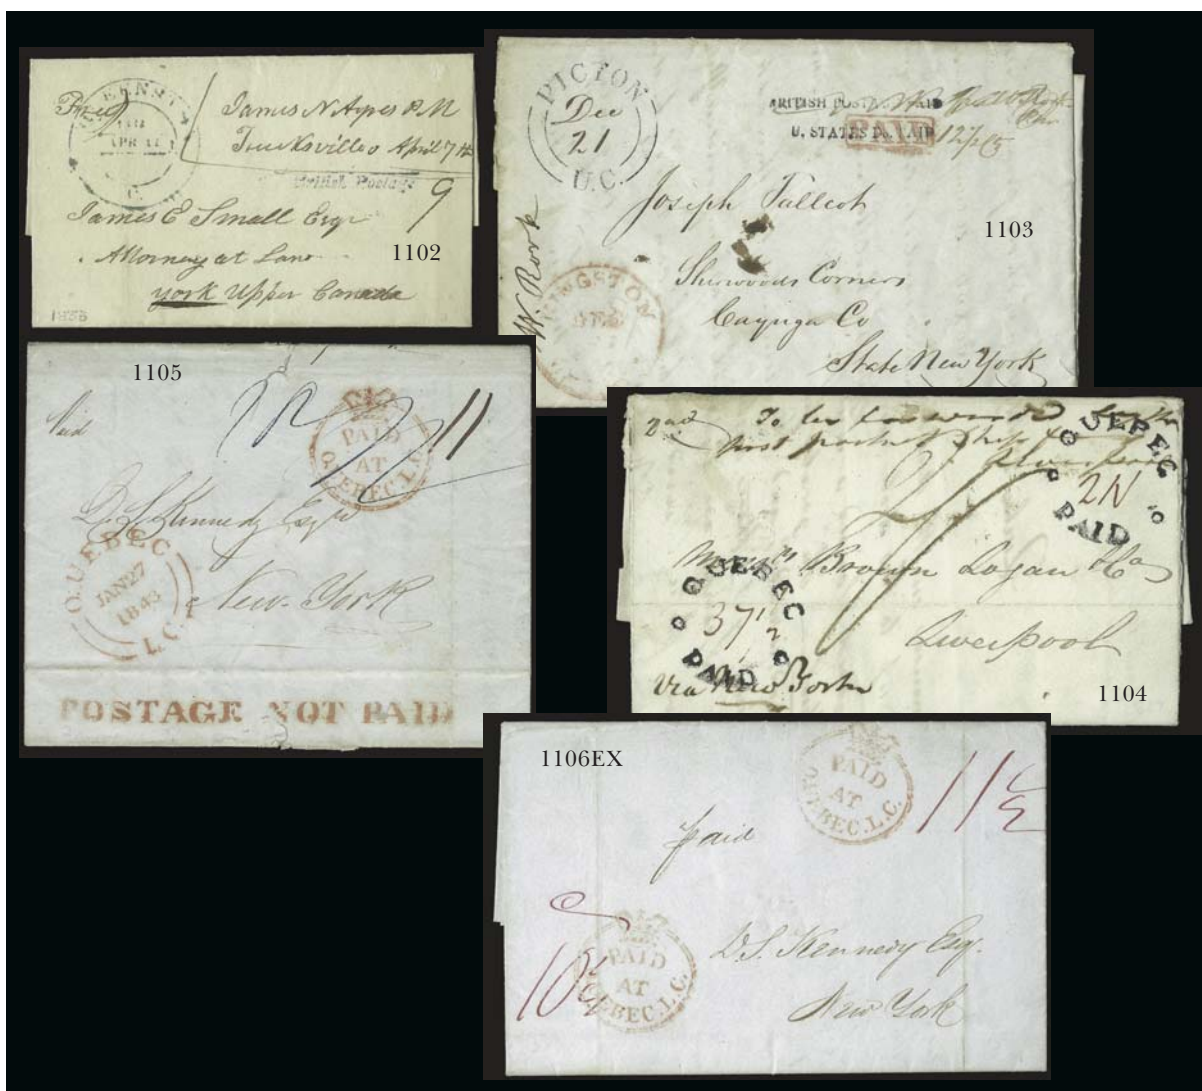 Free
APR 11
James N Ayres P.M
April 7th
British Postage
9
James E Small Esqr
Attorney at Law
York Upper Canada
1102
PICTON
Dec
21
U.C.
BRITISH POSTAGE PAID
U. STATES Do. PAID
PAID
12/25
Joseph Tallcot
1103
Sherwoods Corners
Cayuga Co
State New York
KINGSTON
DEC
1105
Paid
PAID
AT
QUEBEC.L.C.
11
D. S. Kennedy Esqre
New-York
QUEBEC
JAN 27
1843
L.C.
POSTAGE NOT PAID
Paid
To be forwarded by the
first packet ship from
QUEBEC
2N
PAID
Brown Logan & Co
Liverpool
QUEBEC
37 1/2
PAID
Via New York
1104
1106EX
PAID
AT
QUEBEC.L.C.
11
paid
10
PAID
AT
QUEBEC.L.C.
D.S. Kennedy Esq.
New York